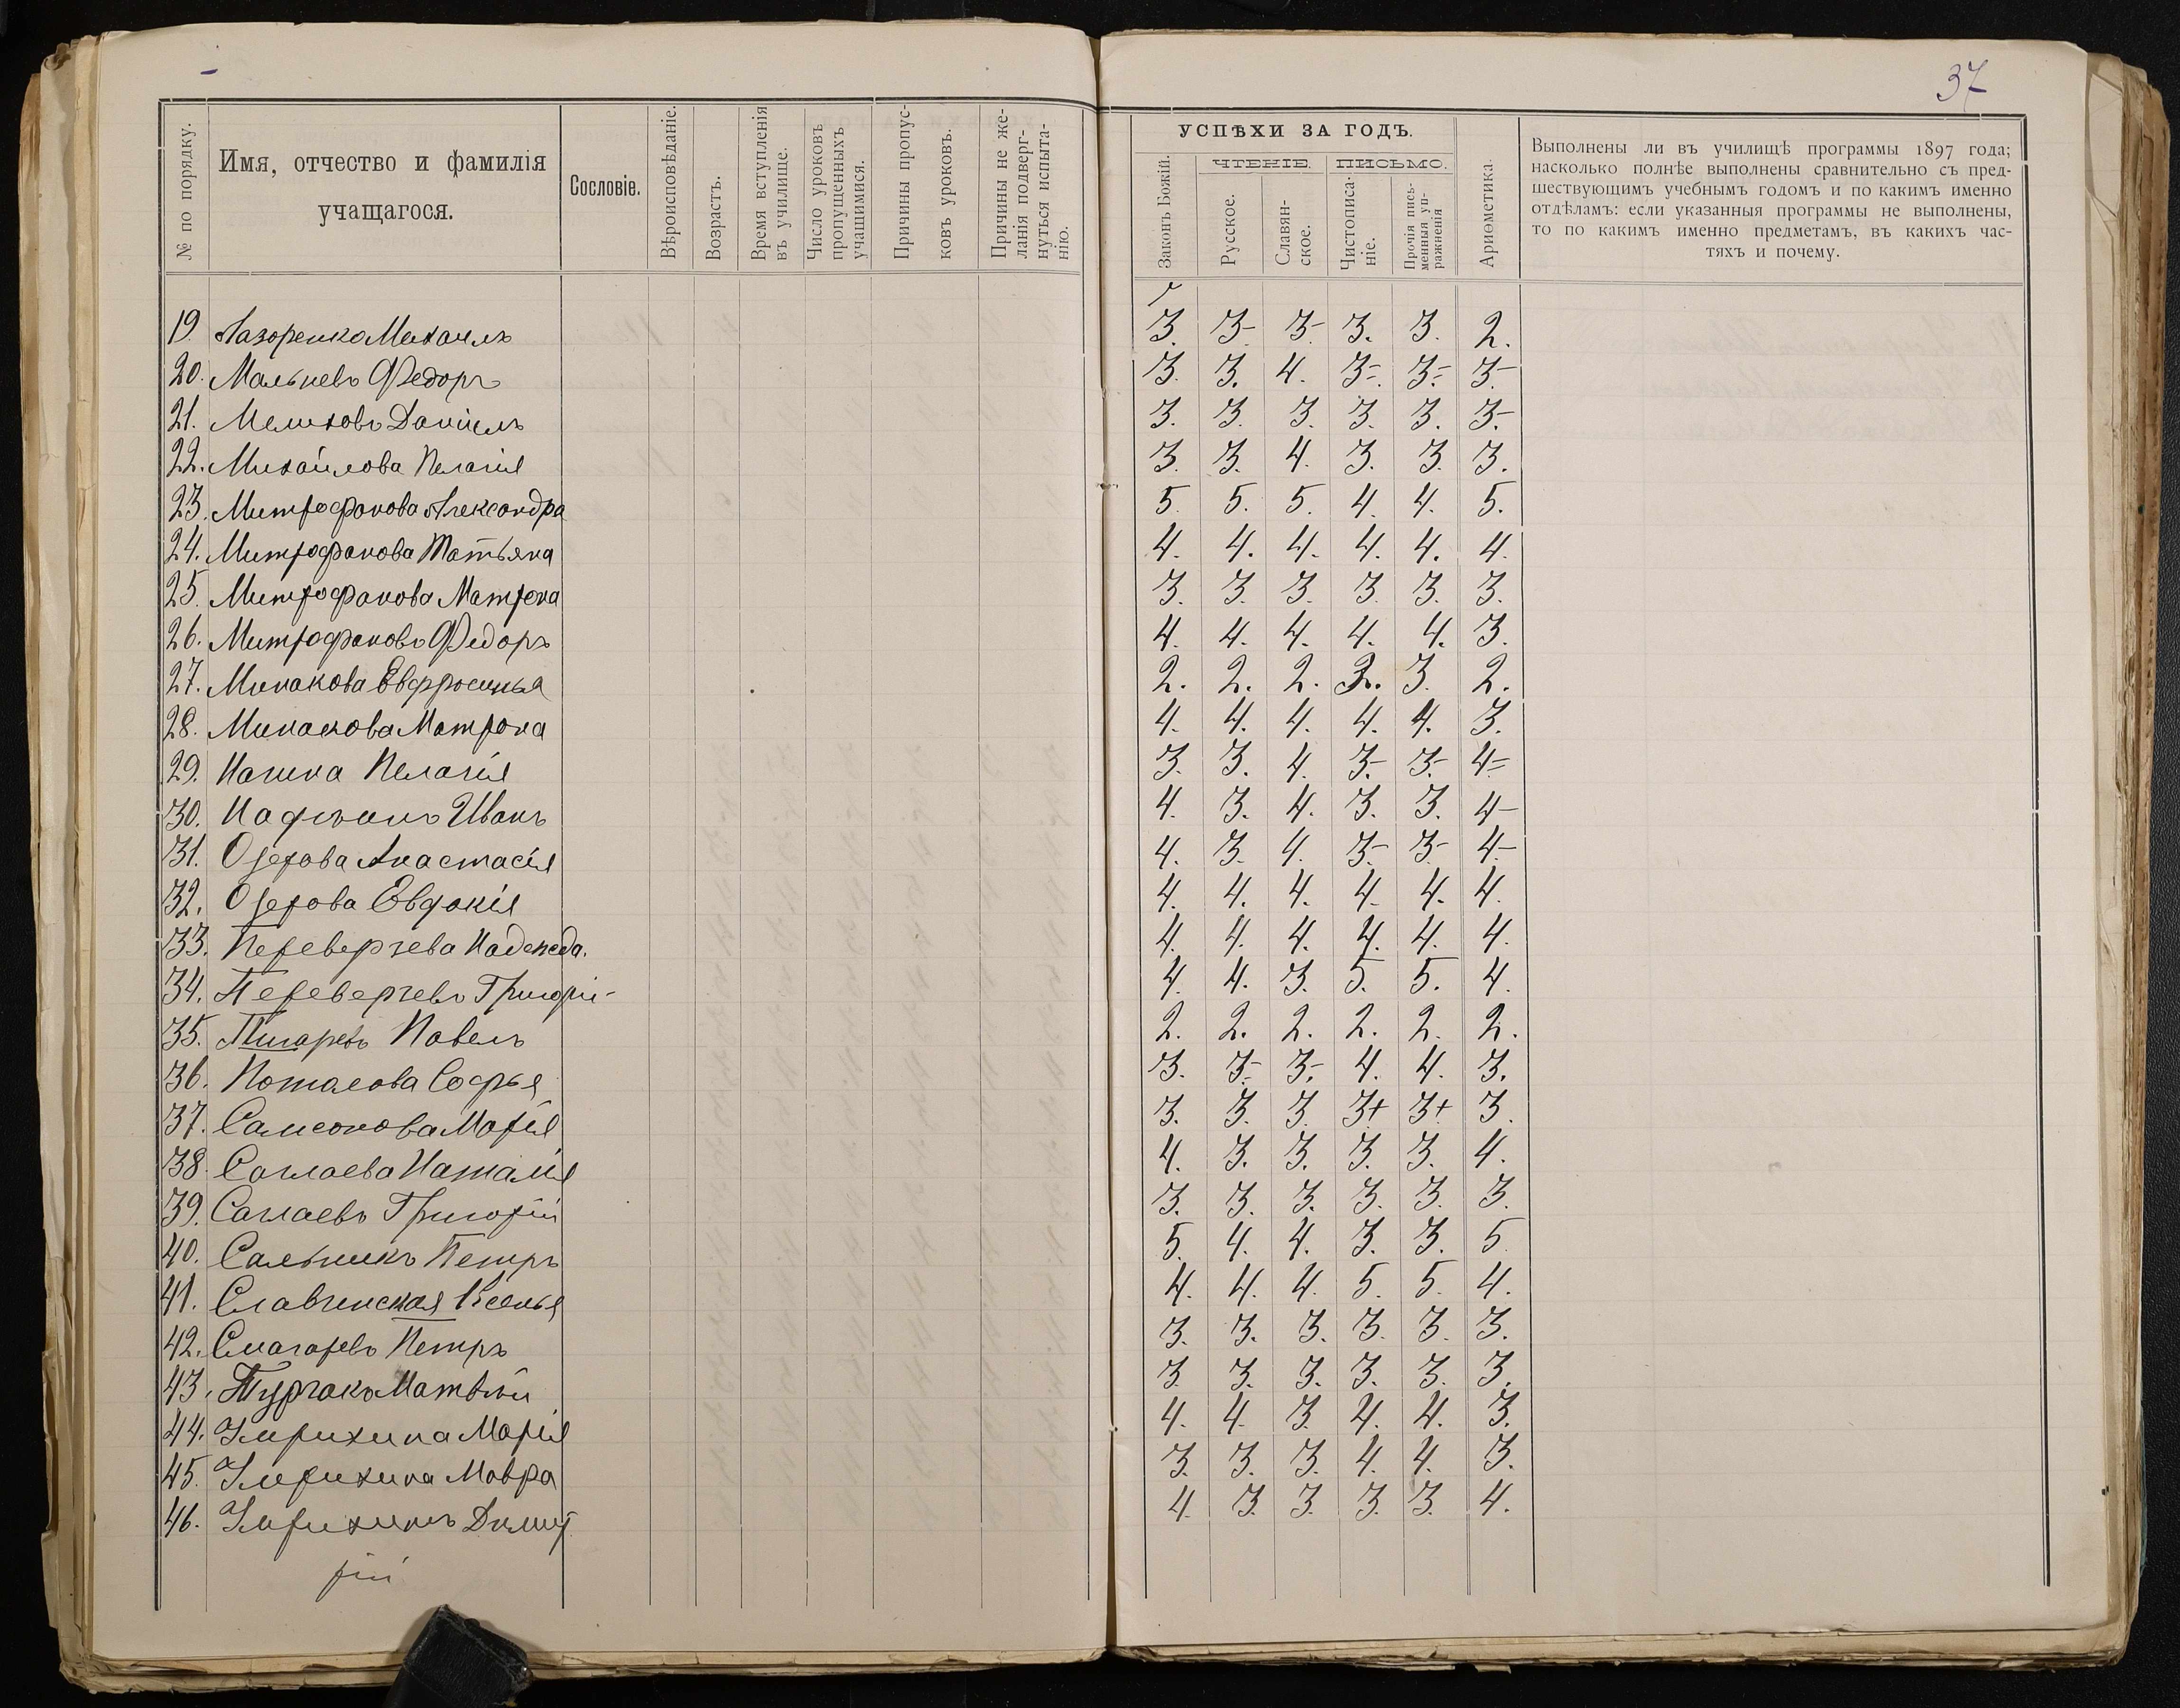 37
№ по порядку.
Имя, отчество и фамилія
учащагося.
Сословіе.
Вѣроисповѣданіе.
Возрастъ.
Время вступленія
въ училище.
Число уроковъ
пропущенныхъ
учащимися.
Причины пропус-
ковъ уроковъ.
Причины не же-
ланія подверг-
нуться испыта-
нію.
УСПѢХИ ЗА ГОДЪ.
Законъ Божій.
ЧТЕНІЕ.
Русское.
Славян-
ское.
ПИСЬМО.
Чистописа-
ніе.
Прочія пись-
менныя уп-
ражненія
Ариѳметика.
Выполнены ли въ училищѣ программы 1897 года;
насколько полнѣе выполнены сравнительно съ пред-
шествующимъ учебнымъ годомъ и по какимъ именно
отдѣламъ: если указанныя программы не выполнены,
то по какимъ именно предметамъ, въ какихъ час-
тяхъ и почему.
19. Лазоренко Михаилъ 3. 3- 3- 3. 3. 2.
20. Мальцевъ Федоръ 3. 3. 4. 3=. 3=. 3-
21. Мелиховъ Даніилъ 3. 3. 3. 3. 3. 3-.
22. Михайлова Пелагія 3. 3. 4. 3. 3. 3.
23. Митрофанова Александра 5. 5. 5. 4. 4. 5.
24. Митрофанова Татьяна 4. 4. 4. 4. 4. 4.
25. Митрофанова Матрена 3. 3. 3. 3. 3. 3.
26. Митрофановъ Федоръ 4. 4. 4. 4. 4. 3.
27. Минакова Евфросинья 2. 2. 2. 3. 3. 2.
28. Минакова Матрона 4. 4. 4. 4. 4. 3.
29. Пелагія 3. 3. 4. 3-. 3-. 4=
30. Иванъ 4. 3. 4. 3. 3. 4-
31. Озерова Анастасія 4. 3. 4. 3-. 3-. 4-
32. Озерова Евдокія 4. 4. 4. 4. 4. 4.
33. Переверзева Надежда. 4. 4. 4. 4. 4. 4.
34. Переверзевъ Григорій 4. 4. 3. 5. 5. 4.
35. Писаревъ Павелъ 2. 2. 2. 2. 2. 2.
36. Потапова Софья 3. 3-. 3-. 4. 4. 3.
37. Самсонова Марія 3. 3. 3. 3+ 3+ 3.
38. Саглаева Наталія 4. 3. 3. 3. 3. 4.
39. Саглаевъ Григорій 3. 3. 3. 3. 3. 3.
40. Сальникъ Петръ 5. 4. 4. 3. 3. 5.
41. Славгинская Ксенья 4. 4. 4. 5. 5. 4.
42. Смагаревъ Петръ 3. 3. 3. 3. 3. 3.
43. Турчакъ Матвѣй 3. 3. 3. 3. 3. 3.
44. Умрихина Марія 4. 4. 3. 4. 4. 3.
45. Умрихина Мавра 3. 3. 3. 4. 4. 3.
46. Умрихинъ Димит 4. 3. 3. 3. 3. 4.
рій